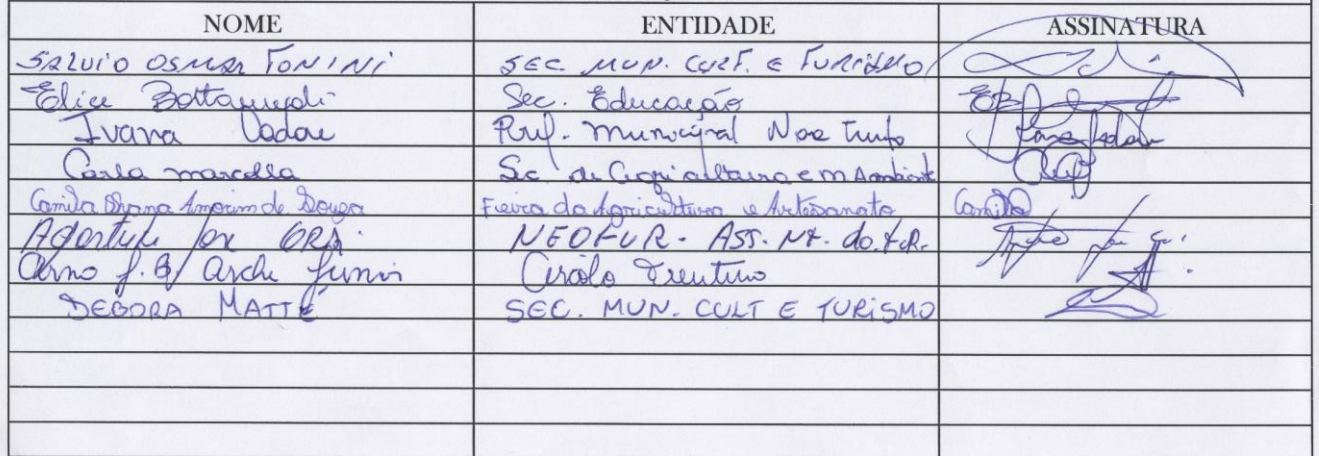 NOME ENTIDADE ASSINATURA
SALVIO OSMAR TONINI SEC. MUN. CULT. E TURISMO
Elice Sec. Educação
Ivana Dadau Pref. Municipal Nova Trento
Carla marcella Sec. de Agricultura e M Ambiente
Camila Amorim de Souza Feira da Agricultura e Artesanato Camila
NEOFUR - ASS.
Arno Junior Circolo Trentino
DEBORA MATTÉ SEC. MUN. CULT E TURISMO